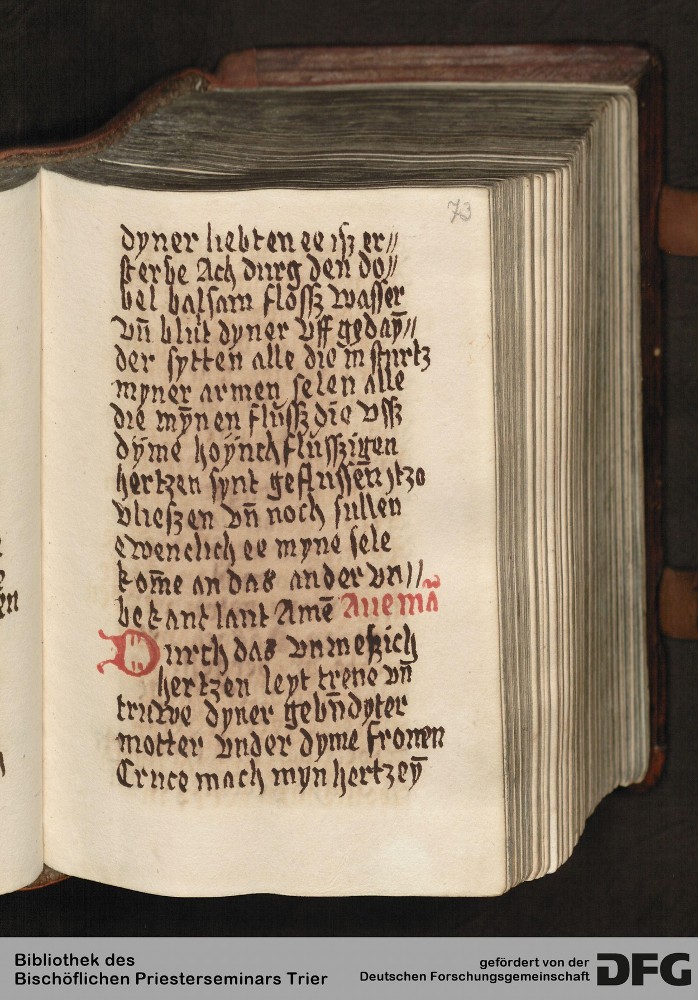 73
dyner liebten ee isz er//
sterbe Ach durg den do//
bel balsam flossz wasser
vn̄ blůt dyner vff gedaȳ//
der sytten alle die in sturtz
myner armen selen alle
die mȳnen flůssz die vssz
dyme hoynchflusszigen
hertzen synt geflussen̄ ytzo
vlieszen vn̄ noch sullen
ewenclich ee myne sele
kom̄e an das ander vn//
bekant lant Amē Aue ma̅
Durch das vnmeszich
hertzen leyt trene vn̄
truwe dyner gebn̄dyter
motter vnder dyme fronen
Cruce mach myn hertzeȳ
Bibliothek des
Bischöflichen Priesterseminars Trier
gefördert von der
Deutschen Forschungsgemeinschaft
DFG